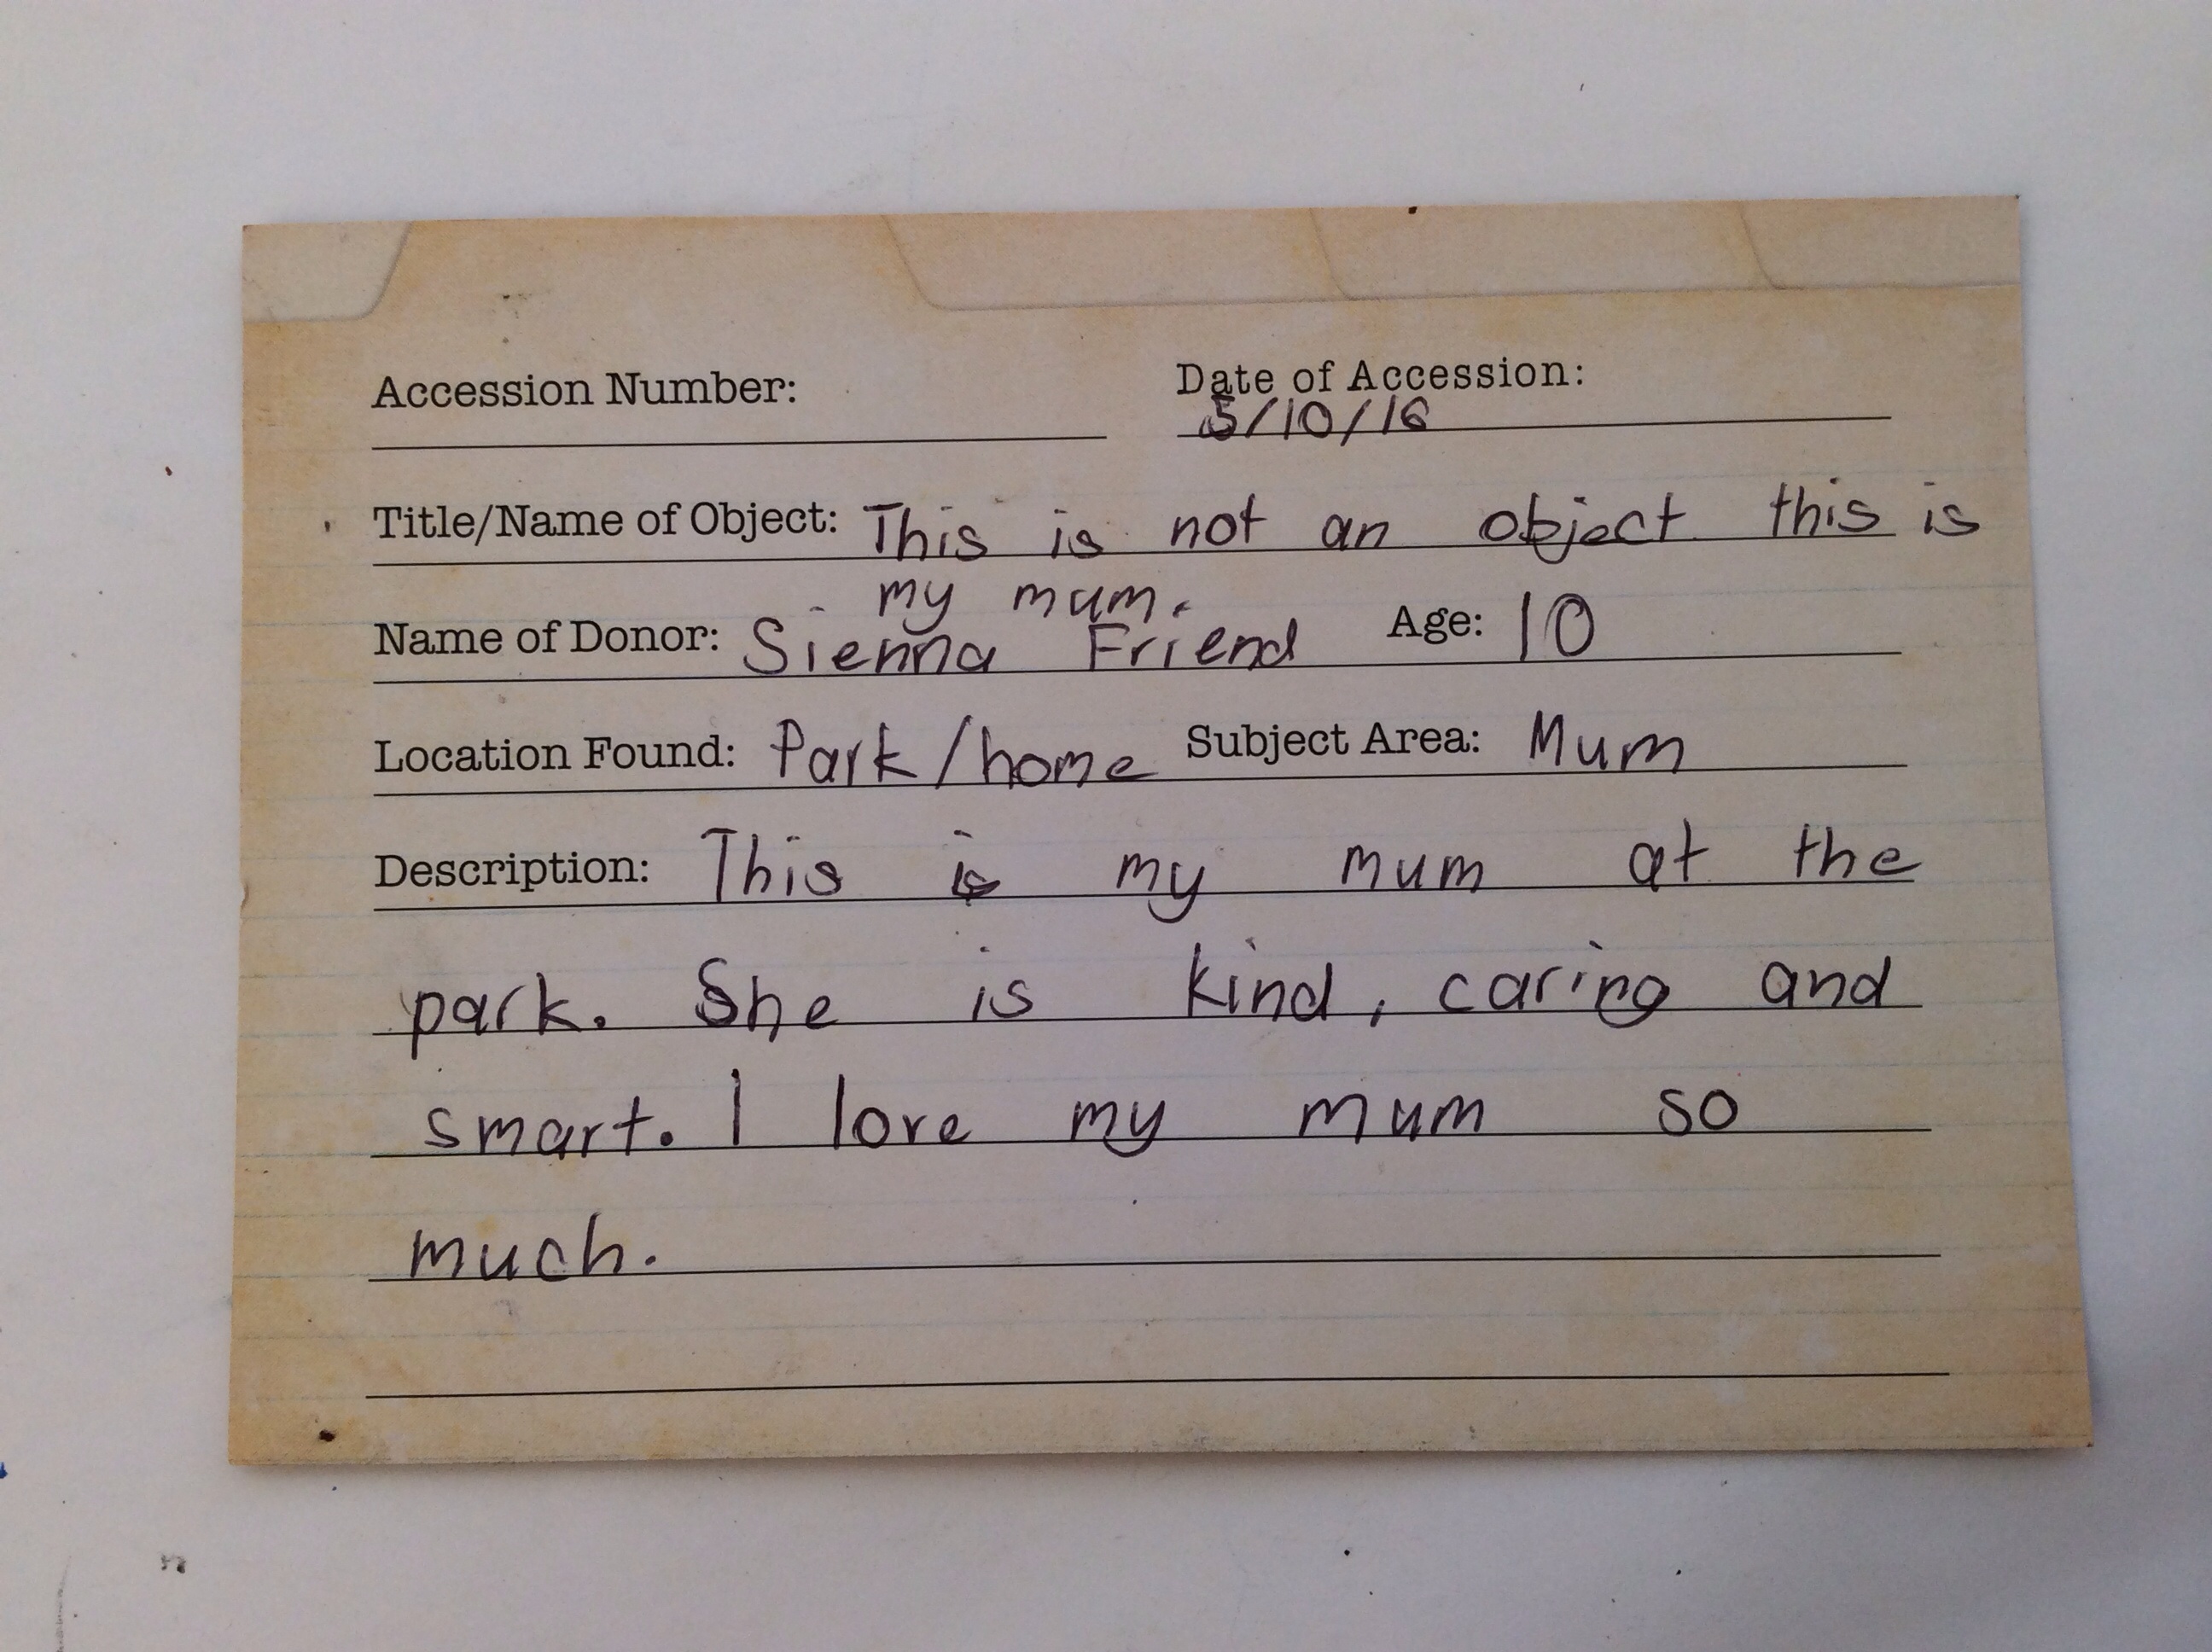 Accession Number:
Date of Accession:
5/10/16
Title/Name of Object: This is not an object this is
my mum.
Name of Donor: Sienna Friend Age: 10
Location Found: Park/home Subject Area: Mum
Description: This is my mum at the
park. She is kind, caring and
smart. I love my mum so
much.